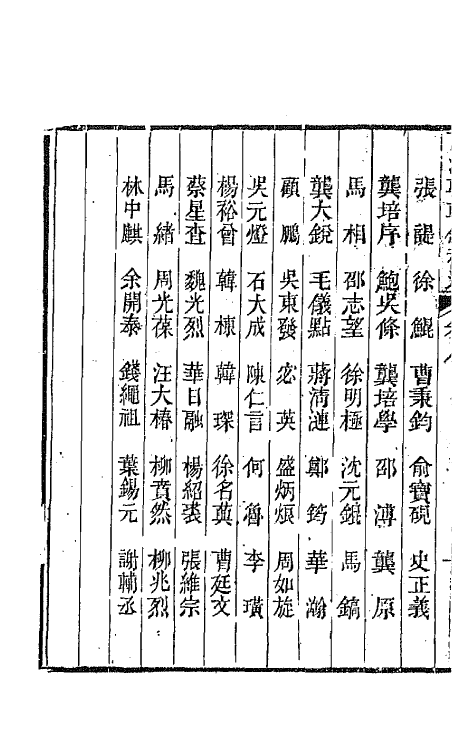 張諟 徐鯤 曹秉鈞 俞寶硯 史正義
龔培序 鮑吳條 龔培學 邵溥 龔原
馬相 邵志望 徐明極 沈元錕 馬鎬
龔大銳 毛儀點 蔣淸漣 鄭筠 華瀚
顧鵬 吳東發 宓英 盛炳烺 周如旋
吳元燈 石大成 陳仁言 何魯 李璜
楊裕曾 韓棟 韓琛 徐名䇓 曹廷文
蔡星查 魏光烈 華日融 楊紹裘 張維宗
馬緒 周光葆 汪大椿 柳賁然 柳兆烈
林中麒 余開泰 錢繩祖 葉錫元 謝輔丞